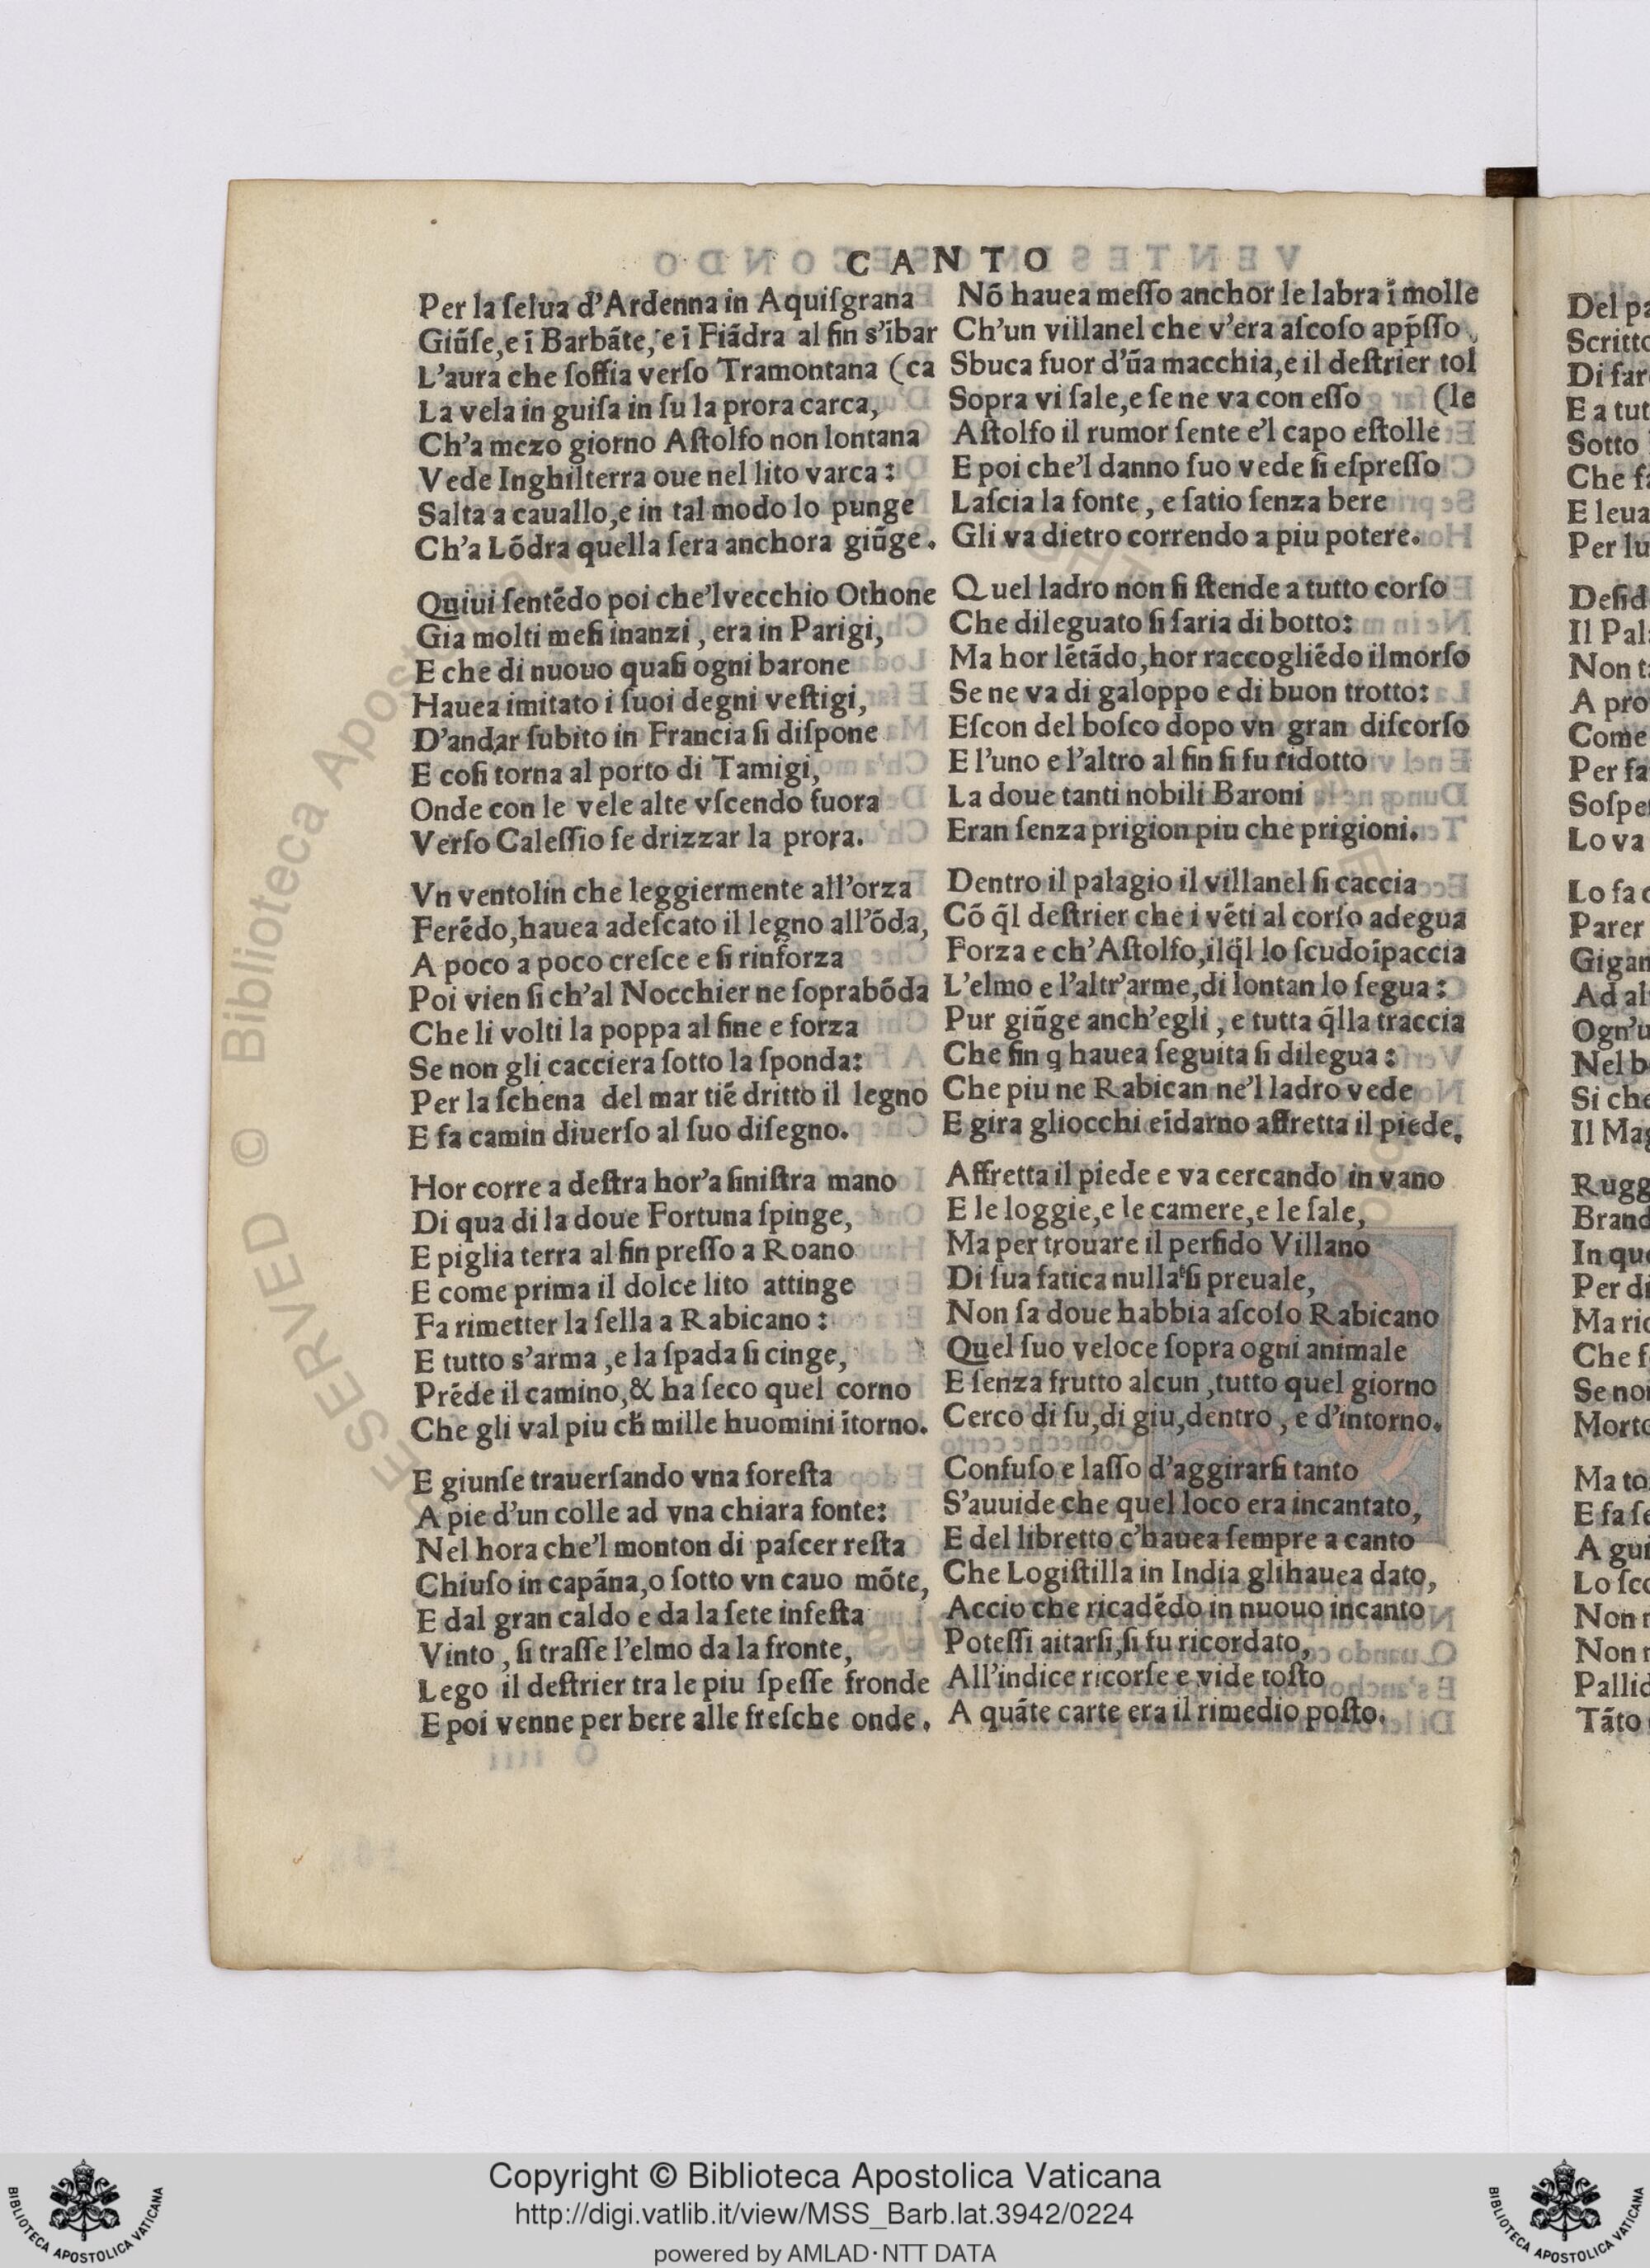 CANTO
Per la ſelua d'Ardenna in Aquiſgrana
Giũſe,e ĩ Barbãte,e ĩ Fiãdra al fin s'ĩbar
L'aura che ſoffia verſo Tramontana (ca
La vela in guiſa in ſu la prora carca,
Ch'a mezo giorno Aſtolfo non lontana
Vede Inghilterra oue nel lito varca:
Salta a cauallo,e in tal modo lo punge
Ch'a Lõdra quella ſera anchora giũge.
Quiui ſentẽdo poi che'l vecchio Othone
Gia molti meſi inanzi, era in Parigi,
E che di nuouo quaſi ogni barone
Hauea imitato i ſuoi degni veſtigi,
D'andar ſubito in Francia ſi diſpone
E coſi torna al porto di Tamigi,
Onde con le vele alte vſcendo fuora
Verſo Caleſſio fe drizzar la prora.
Vn ventolin che leggiermente all'orza
Ferẽdo,hauea adeſcato il legno all'õda,
A poco a poco creſce e ſi rinforza
Poi vien ſi ch'al Nocchier ne ſoprabõda
Che li volti la poppa al fine e forza
Se non gli cacciera ſotto la ſponda:
Per la ſchena del mar tiẽ dritto il legno
E fa camin diuerſo al ſuo diſegno.
Hor corre a deſtra hor'a ſiniſtra mano
Di qua di la doue Fortuna ſpinge,
E piglia terra al fin preſſo a Roano
E come prima il dolce lito attinge
Fa rimetter la ſella a Rabicano:
E tutto s'arma,e la ſpada ſi cinge,
Prẽde il camino,& ha ſeco quel corno
Che gli val piu ch̃ mille huomini ĩtorno.
E giunſe trauerſando vna foreſta
A pie d'un colle ad vna chiara fonte:
Nel hora che'l monton di paſcer reſta
Chiuſo in capãna,o ſotto vn cauo mõte,
E dal gran caldo e da la ſete infeſta
Vinto, ſi traſſe l'elmo da la fronte,
Lego il deſtrier tra le piu ſpeſſe fronde
E poi venne per bere alle freſche onde.
Nõ hauea meſſo anchor le labra ĩ molle
Ch'un villanel che v'era aſcoſo app̃ſſo
Sbuca fuor d'ũa macchia,e il deſtrier tol
Sopra vi ſale,e ſe ne va con eſſo (le
Aſtolfo il rumor ſente e'l capo eſtolle
E poi che'l danno ſuo vede ſi eſpreſſo
Laſcia la fonte, e ſatio ſenza bere
Gli va dietro correndo a piu potere.
Quel ladro non ſi ſtende a tutto corſo
Che dileguato ſi ſaria di botto:
Ma hor lẽtãdo,hor raccogliẽdo il morſo
Se ne va di galoppo e di buon trotto:
Eſcon del boſco dopo vn gran diſcorſo
E l'uno e l'altro al fin ſi fu ridotto
La doue tanti nobili Baroni
Eran ſenza prigion piu che prigioni.
Dentro il palagio il villanel ſi caccia
Cõ q̃l deſtrier che i vẽti al corſo adegua
Forza e ch'Aſtolfo,ilq̃l lo ſcudo ĩpaccia
L'elmo e l'altr'arme,di lontan lo ſegua:
Pur giũge anch'egli, e tutta q̃lla traccia
Che fin q hauea ſeguita ſi dilegua:
Che piu ne Rabican ne'l ladro vede
E gira gliocchi eĩdarno affretta il piede,
Affretta il piede e va cercando in vano
E le loggie,e le camere,e le ſale,
Ma per trouare il perfido Villano
Di ſua fatica nulla ſi preuale,
Non ſa doue habbia aſcoſo Rabicano
Quel ſuo veloce ſopra ogni animale
E ſenza frutto alcun,tutto quel giorno
Cerco di ſu,di giu,dentro, e d'intorno.
Confuſo e laſſo d'aggirarſi tanto
S'auuide che quel loco era incantato,
E del libretto c'hauea ſempre a canto
Che Logiſtilla in India glihauea dato,
Accio che ricadẽdo in nuouo incanto
Poteſſi aitarſi,ſi fu ricordato,
All'indice ricorſe e vide toſto
A quãte carte era il rimedio poſto.
Del pa
Scritto
Di far
E a tut
Sotto
Che fa
E leua
Per lu
Deſid
Il Pal
Non t
A pro
Come
Per fa
Soſpe
Lo va
Lo fa c
Parer
Gigan
Ad al
Ogn'u
Nel b
Si che
Il Mag
Rugg
Brand
In que
Per di
Ma ric
Che ſ
Se non
Morto
Ma to
E fa ſe
A gui
Lo ſco
Non
Non
Pallid
Tãto
© Biblioteca Apost
ESERVED
Copyright © Biblioteca Apostolica Vaticana
http://digi.vatlib.it/view/MSS_Barb.lat.3942/0224
powered by AMLAD·NTT DATA
BIBLIOTECA APOSTOLICA VATICANA
BIBLIOTECA APOSTOLICA VATICANA